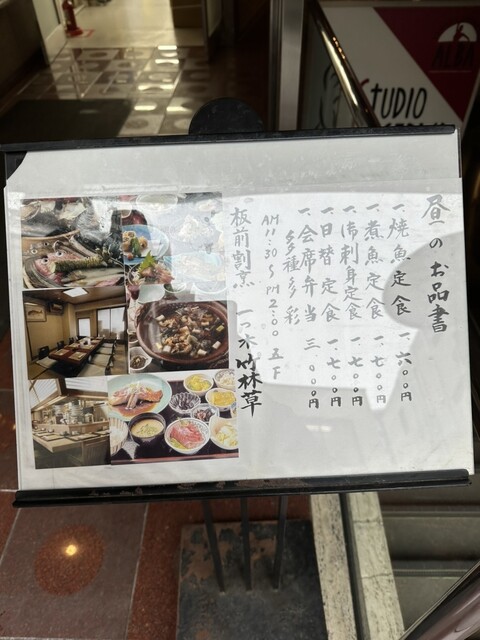 昼のお品書
一、焼魚定食 一、六〇〇円
一、煮魚定食 一、七〇〇円
一、御刺身定食 一、七〇〇円
一、日替定食 一、七〇〇円
一、会席弁当 三、〇〇〇円
多種多彩
AM11:30〜PM2:00
板前割烹 一ツ木 竹林草
STUDIO
ALBA